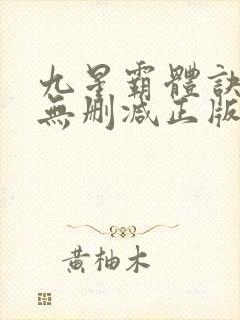 九星霸體訣
無刪減正版
黃柚木